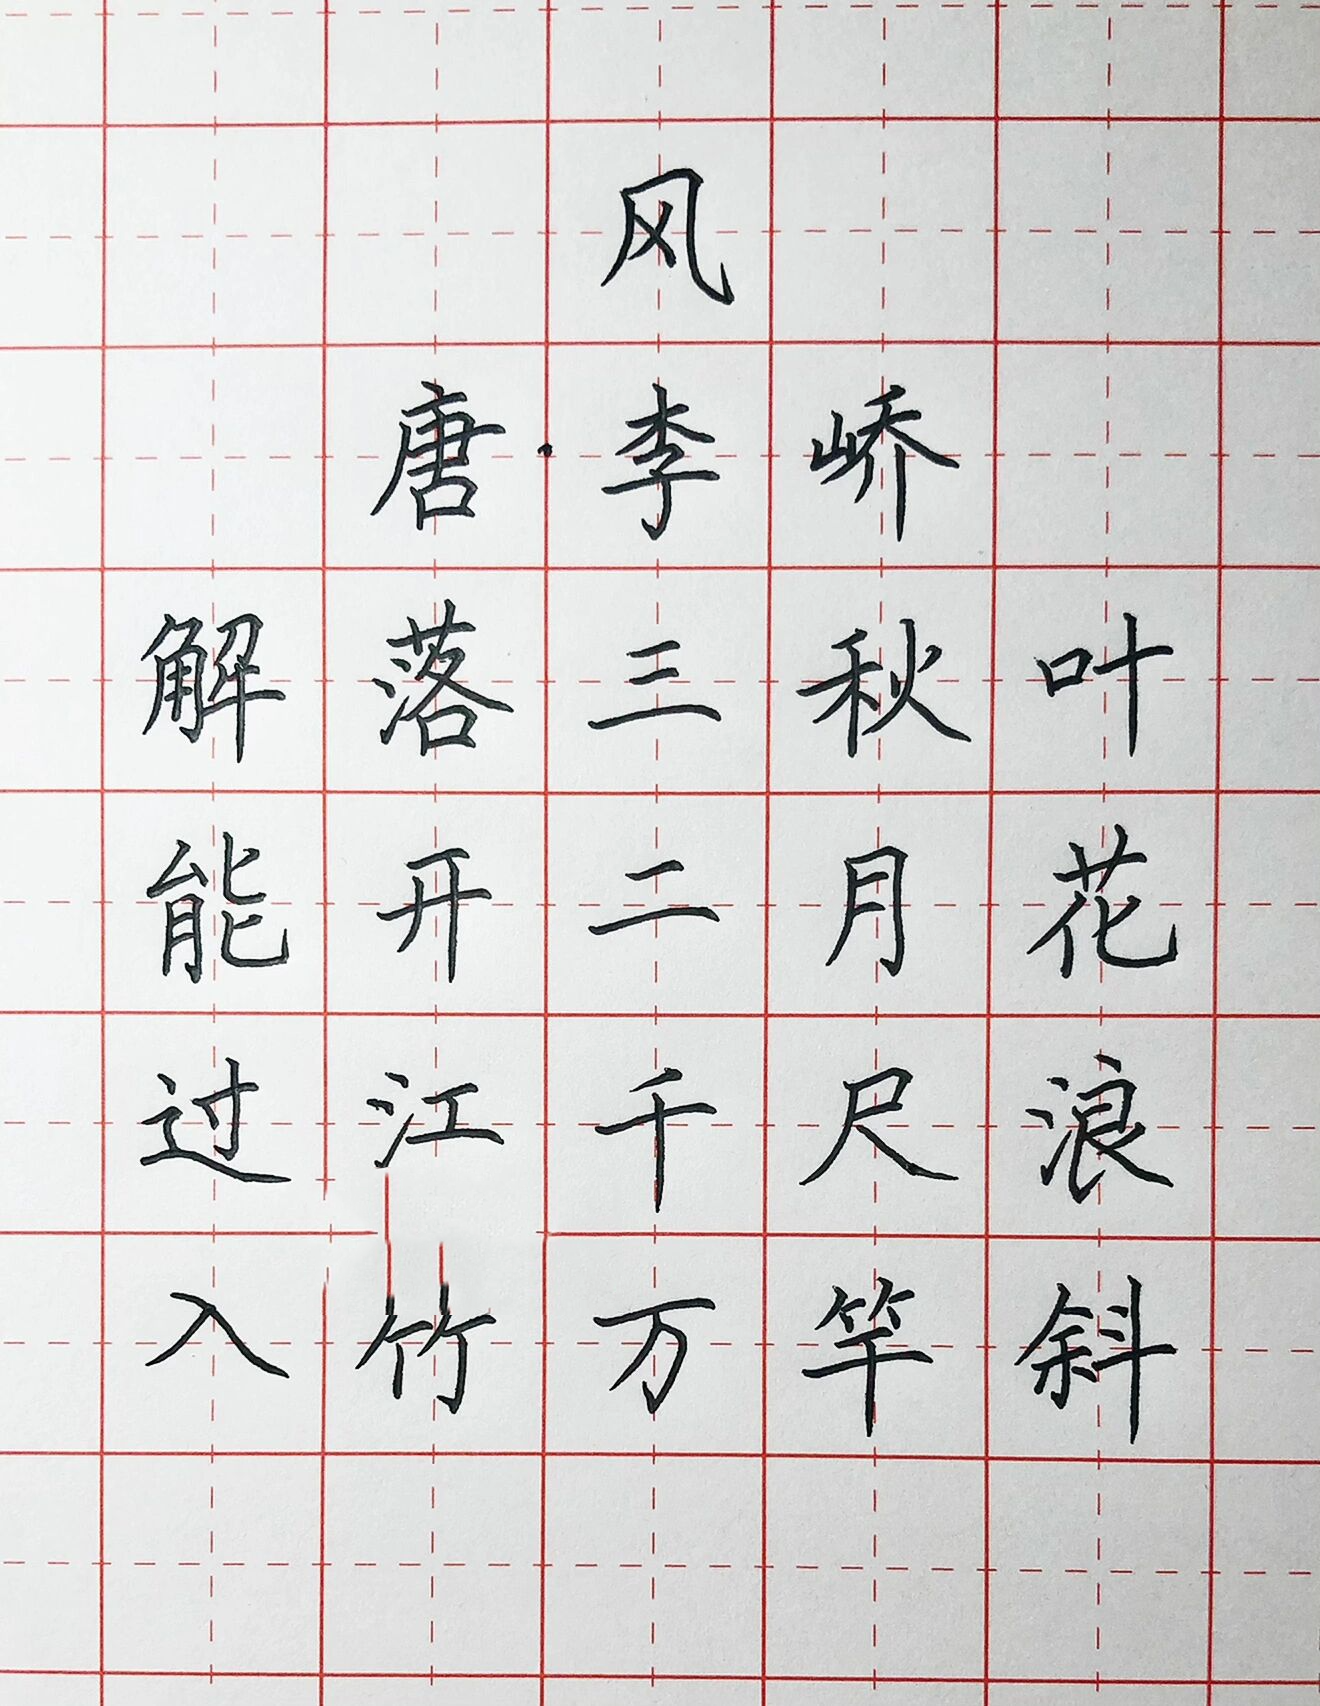 风
唐·李峤
解落三秋叶
能开二月花
过江千尺浪
入竹万竿斜